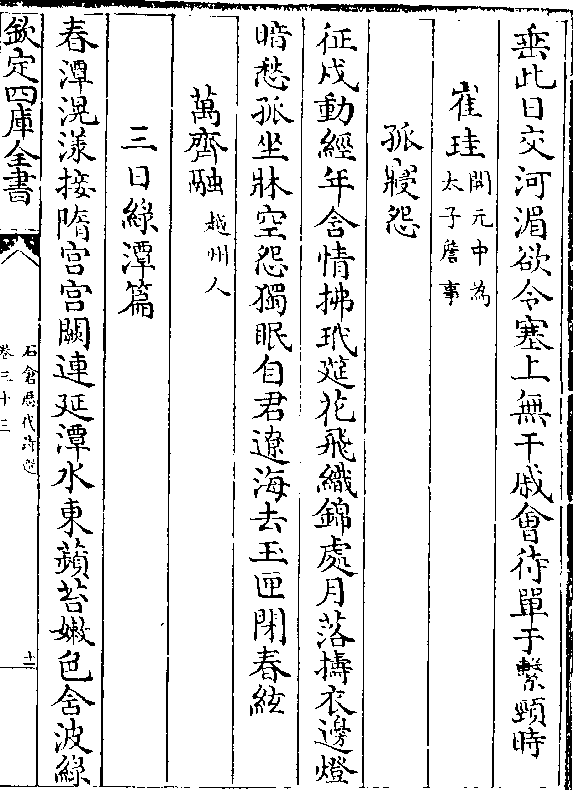 垂此日交河湄欲令塞上無干戚會待單于繫頸時
崔珪開元中為太子詹事
孤寢怨
征戍動經年含情拂玳筵花飛織錦處月落擣衣邊燈
暗愁孤坐牀空怨獨眠自君遼海去玉匣閉春絃
萬齊融越州人
三日綠潭篇
春潭滉漾接隋宮宮闕連延潭水東蘋苔嫩色含波綠
欽定四庫全書
石倉歷代詩選
卷三十三
十二